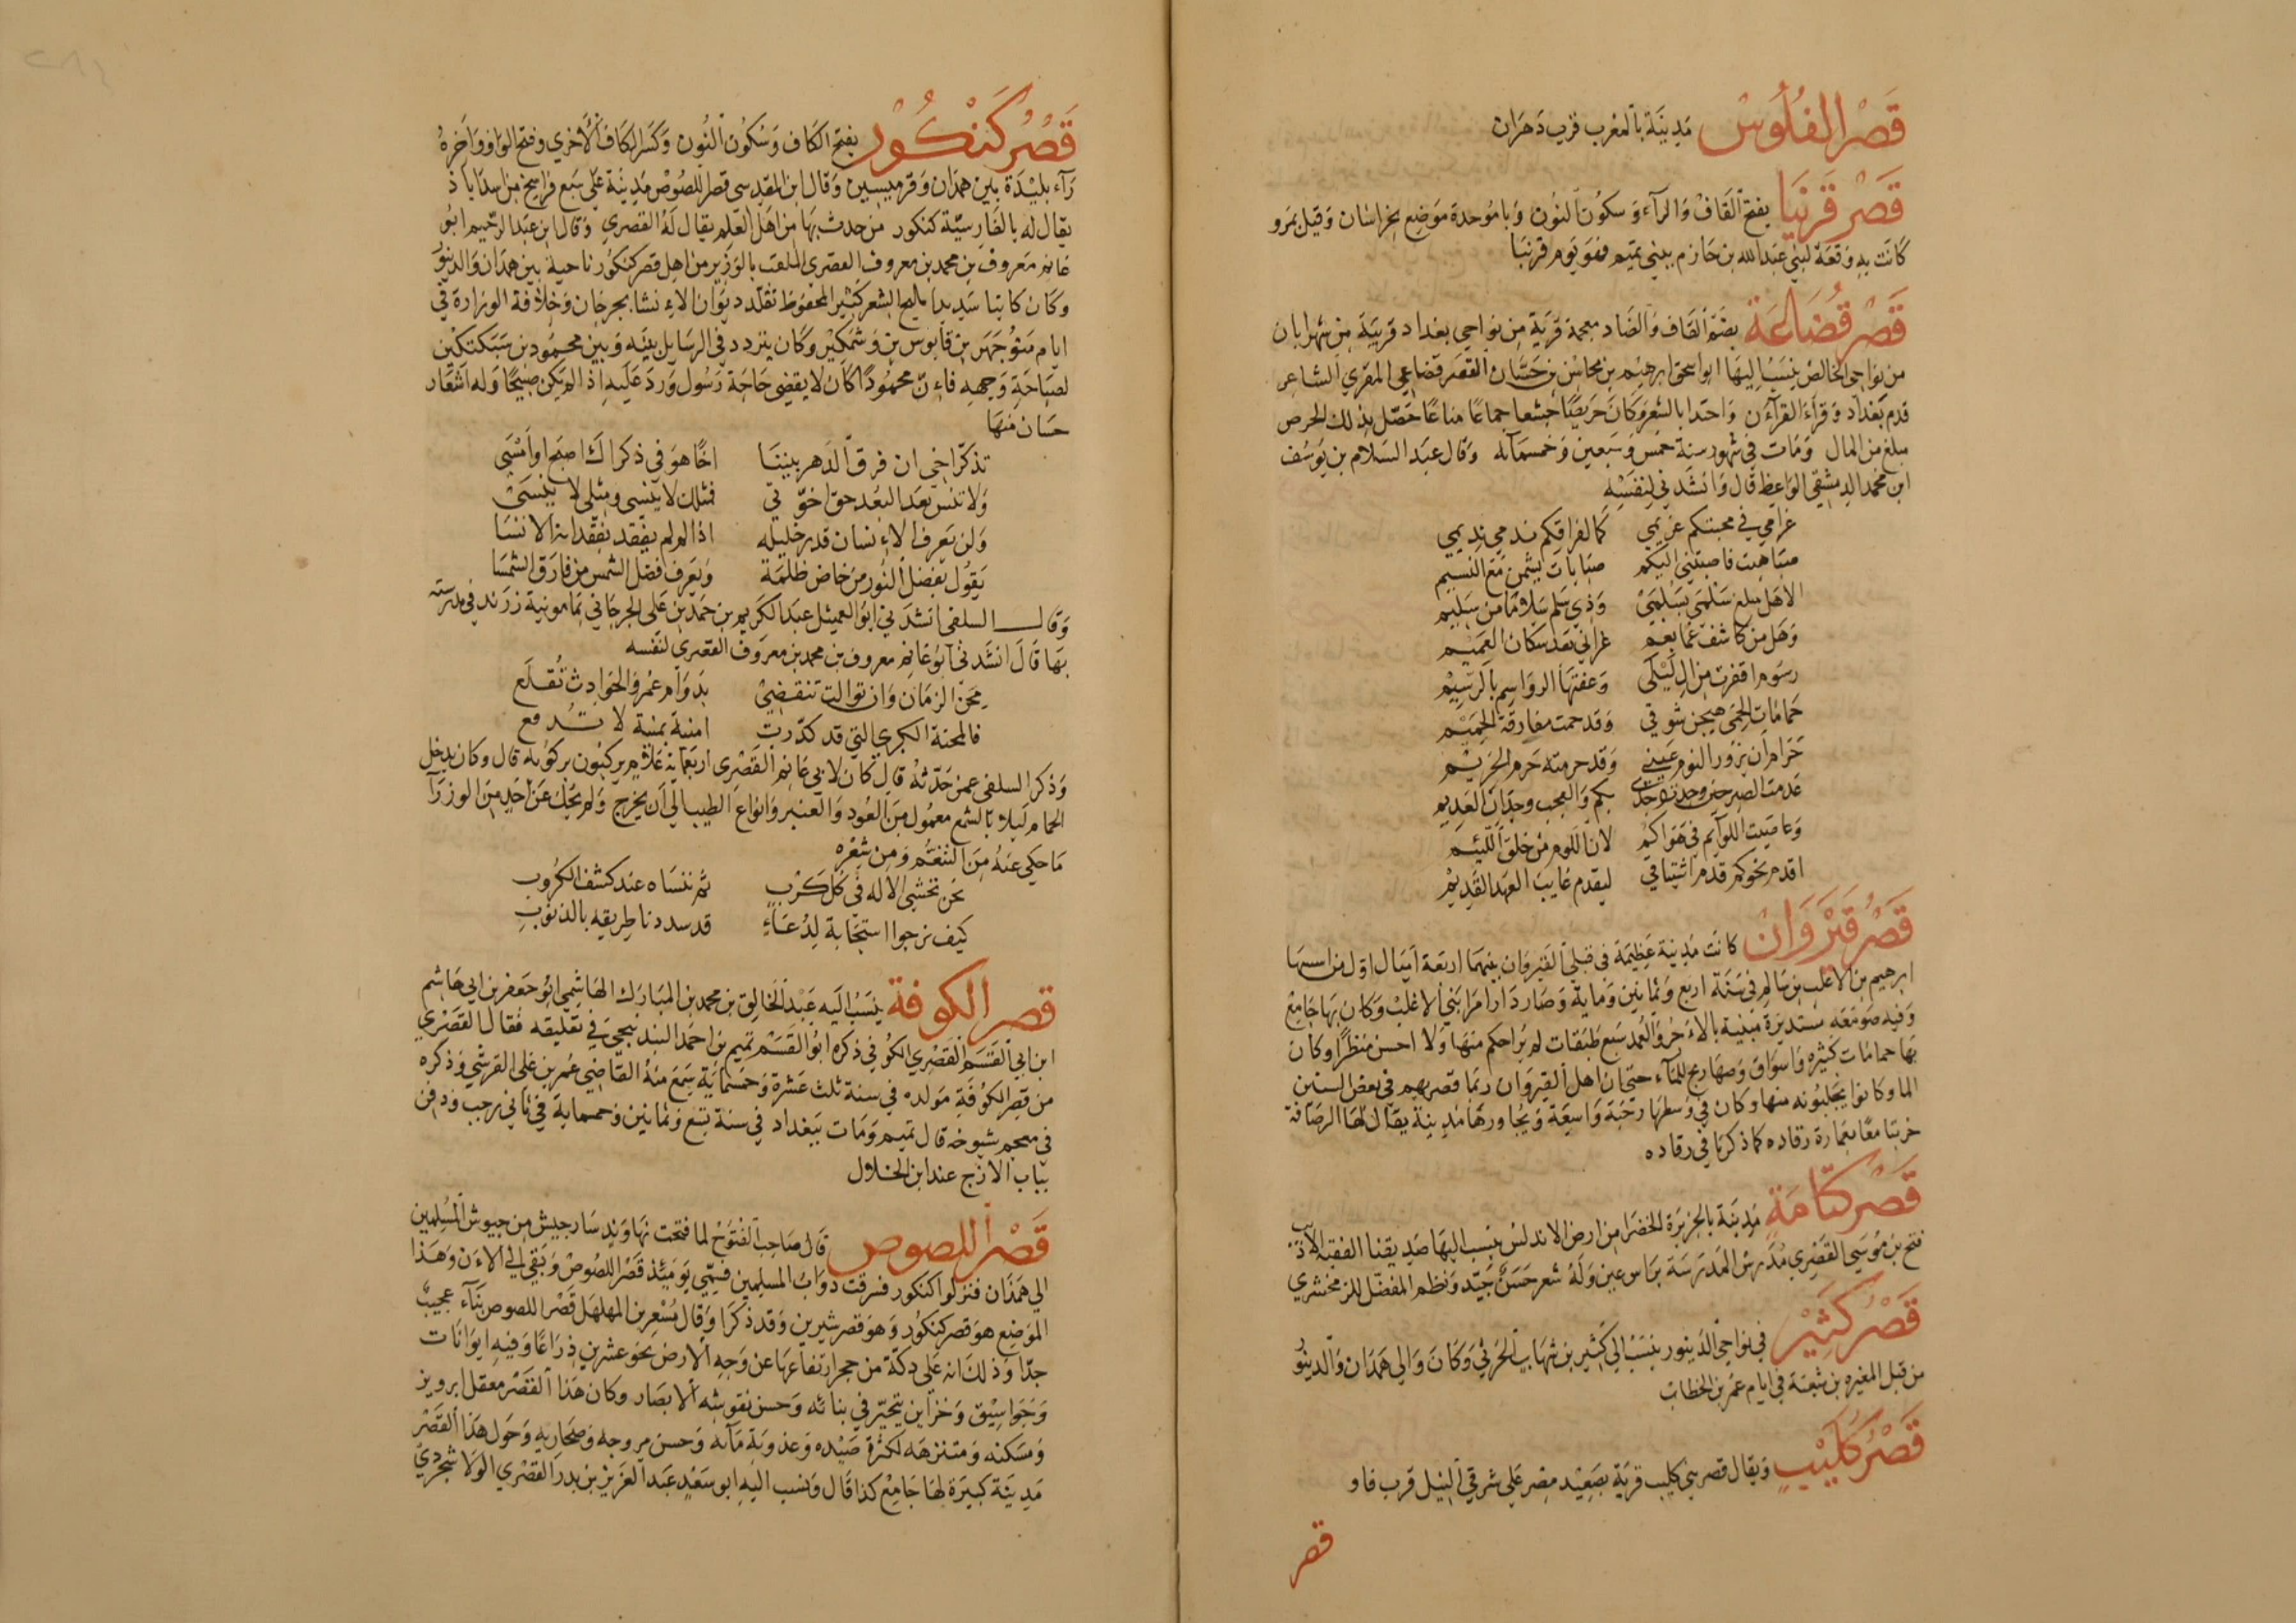 قَصْر الفُلُوسْ مَدِينَة بالمغرب قرب دَهرَان
قَصْر قَرَنبَا بفتح القَاف وَالرآء وَسكون النون وَبا مُوحدة مَوضِع بخراسَان وَقيل بمرو
كانَت به وَقعَة لبني عَبد الله بن حَازم ببني تميم فهو يَوم قرنبَا
قَصْر قُضَاعَة بضَمّ القَاف وَالضَاد معجمة قَريَة من نوَاحي بغداد قريبَة من شهرابان
من نوَاحي الخالص ينسَبُ اليهَا ابو اسحق ابرهيْم بن محاسْن بن حَسَّان القصَرقضاعي المقري الشاعر
قدم بَغدَاد وَقرأَ القرآءن وَاحتدا بالشعر وَكانَ حَريصًا جشعا جماعًا مناعًا حَصّل بذلك الحرص
مبلغ من المال وَمَات في شهور سنة خمس وَسَبعين وَخمسمآئه وَقال عبَد السَلام بن يوَسُف
ابن محمد الدمشقي الوَاعظ قال وَانشَدَني لنَفسِهِ
غرَامي في محبتكم غريمي كمَا لفراقكم ندمي نديمي
صبَا هبت فاصبتني اليكم صبَابَات يشمن مَع النسيم
الا هَل مبلغ سَلمَى بسَلمَى وَذي سَلم سَلامًا من سَليم
وَهَل من كاشف غمَا بغم عراني بَعد سَكان الغميم
رسُوم اقفرت من ال لَيْلَى وَعفتهَا الروَاسِم بالرَسِيْم
حَمامَات الحَمى هيجن شوقي وَقد حمت مفارقة الحَميْم
حَرام ان يزوَر النوم عَيني وَقد حرمته حَرم الحريْم
عَدمت الصبر حين وجدت وَجدي بكم وَالعجب وجدَان العَديم
وَعاصَيت اللوآئم في هَواكم لان اللَوم من خلق اللئيم
اقدم نحوكم قدم اشتياقي ليقدم غايبَ العهد القَدِيْم
قَصْر قَيْرَوَانْ كانَت مَدينَة عَظيمَة في قبلي القيروَان بينهمَا اربَعة اَميَال اوّل من اسسهَا
ابرهيم بن الاغلب بن سَالم في سَنَة اربع وَثمانين وَمَاية وَصَار دَارا مَرا بَني الاغلَبْ وَكان بهَا جَامِعْ
وَفيه صَومَعَه مُستديرَة مَبنية بالآجُر وَالعُمد سَبع طبَقات لم يرَ احكم منهَا وَلا احسن منظَرًا وكان
بهَا حمامَات كثيره وَاسوَاق وَصهَاريج للمآء حتى ان اهل القيرَوَان ربمَا قصرَ بهم في بعض السنين
الما وكانوا يجلبُونه منها وكان في وَسطهَا رَحبَة وَاسِعَة وَيجاورهَا مَدِينة يقال لهَا الرصَافة
خربتا معًا بعمارة رقاده كما ذكرنا في رقاده
قَصْر كُتَامَة مَدِينَة بالجزيرَة الخضرا من ارض الاندلس ينسب اليهَا صَديقنا الفقيه الاديب
فتح بن مُوسَى القَصْري مُدَرس المَدرَسَة برَاس عين وَله شعر حَسَن جَيّد وَنظم المفصّل للزمخشري
قَصْر كَثِيْر في نوَاحي الدَينور ينسَبْ الى كَثير بن شهَاب الحَرثي وَكانَ وَالي همَدَان وَالدينور
من قبل المغيره بن شعبَة في ايام عمَر بن الخطابْ
قَصْر كُلَيْبِ وَيقال قصر بني كليب قريَة بصَعيْد مصْر عَلى شرقي النيل قرب فاو
قصر
قَصْر كَنْكَوَر بفتح الكَاف وَسُكون النُون وَكسر الكَاف الاُخري وفتح الوَاو وَاَخرهُ
رآء بليْدَة بَين همَدَان وَقرميسِين وَقال ابن المقدسى قصر اللصُوْص مَدِينَة عَلى سَبع فرَاسخ من اسدَاباذ
يقال له بالفارسيَّة كنكور من حدث بهَا من اهل العلم يقال لَهُ القصري وَقال ابن عَبد الرحيم ابو
غانم مَعروف بن محمد بن معروف القصرى الملقب بالوَزير من اهل قصر كنكوَر ناحية بين همَدَان وَالدينور
وَكان كاتبا سَديدا مليح الشعر كثير المحفوظ تقلّد ديوَان الانشا بجرجَان وَخلافة الوزارة في
ايام منوُجهَر بن قابوس بن وَشمكير وَكان يتردد في الرسَايل بينَه وَبين محمُود بن سَبكتكين
لصبَاحَةِ وَجههِ فاءنّ محمُودًا كان لا يقضى حَاجَة رَسُول وَردَ عَلَيهِ اذا لم يكن صَبيحًا وَله اشعَار
حَسَان منهَا
تذكّر اخي ان فرق الدَهر بيننَا اخًا هوَ في ذكراك اصبَح او اَمْسَي
وَلا تنس بعَد البُعد حق اخوّتي فمثلك لا ينسى وَمثلي لا ينسى
وَلن يَعرف الاءنسَان قدر خليله اذا لم لم يفقد بفقدانه الانسَا
يَقوُل بفضل النُور من خاض ظلمَة وَيَعرف فضل الشمس من فارَق الشمسَا
وَقال السلفي انشدَني ابوُ العميثل عبَد الكَريم بن حمَد بن عَلى الجرجَاني بمَامونية زرَند في مدرسته
بهَا قالَ انشَدنى ابوُ غانم معروف بن محمد بن معرَوف القصرى لنَفسه
محَن الزمَان وَان توَالت تنقضيْ بدَوام عمر وَالحوَادث تقلَع
فالمحنة الكبري التي قد كدّرت امنية بمنية لا تُدفع
وَذكر السلفي عمن حَدّثهُ قال كان لابي غانم القَصْري اربَعمَاية غلام يركبُون بركوُبه قال وكان يدخل
الحمام لَيلا بالشمع معمُول من العُود وَالعنبر وَانوَاع الطيب الى ان يخرج وَلم يحك عَن اَحد من الوزرآء
مَا حكي عنَهُ من التنعّم وَمن شعْره
نحَن نخشى الاله في كُل كَرْب ثم ننسَاه عند كشف الكروب
كيَف نرجوا استجَابة لدُعَاءِ قد سددنا طريقه بالذنوب
قصر الكوفة ينسَبُ اليَه عَبْد الخالق بن محمد بن المبارَك الهَاشمي ابوُ جَعفر بن ابي هَاشم
ابن ابي القسَم القَصْري الكوُفي ذكره ابوُ القَسَم تميم بن احمد البندنيجي في تعَليقه فقال القَصْري
من قصر الكوُفة مَولده في سنة ثلث عَشرة وَخمسمَائة سَمعَ منهُ القاضي عمَر بن عَلى القرشي وَذكره
في معجم شيوخه قال تميم وَمَات ببَغداد في سنة تسَع وَثمَانين وَخمسماية في ثاني رجب وَدفن
بباب الازج عند ابن الخلال
قَصْر اللصوص قَال صَاحب الفتوُح لما فتحت نهَاوَند سَار جيش من جيوش المُسلِمين
الي همَذَان فنزلوا كنكور فسرقت دوَابّ المسلمين فسمّي يَومَئذ قَصْر اللصُوصْ وَبقي الي الاءَن وَهَذا
الموَضِع هوَ قصر كنكوُر وَهوَ قصر شيرين وَقد ذكرَا وَقال مُسْعر بن المهلهَل قَصْر اللصوص بنآء عجيبٌ
جدّا وَذلكَ انه عَلى دكّة من حجر ارتفاعهَا عن وَجهِ الارض نحَو عشرين ذرَاعًا وَفيهِ ايوَانات
وَجَوَاسِيق وَخزاين يتحيّر في بنائه وَحسن نقوشه الابصَار وكان هَذا القصْر معقل ابرويز
وَمسَكنه وَمتنزهَه لكثرة صَيْده وَعذوبَة مَآئه وَحسن مروجه وَصحَاريه وَحَول هَذا القصْر
مَدِينَة كبيرَة لهَا جَامِعْ كذا قال وَنسب اليهِ ابو سَعيْد عَبد العَزيز بن بدر القصْري الوَلاشجردي